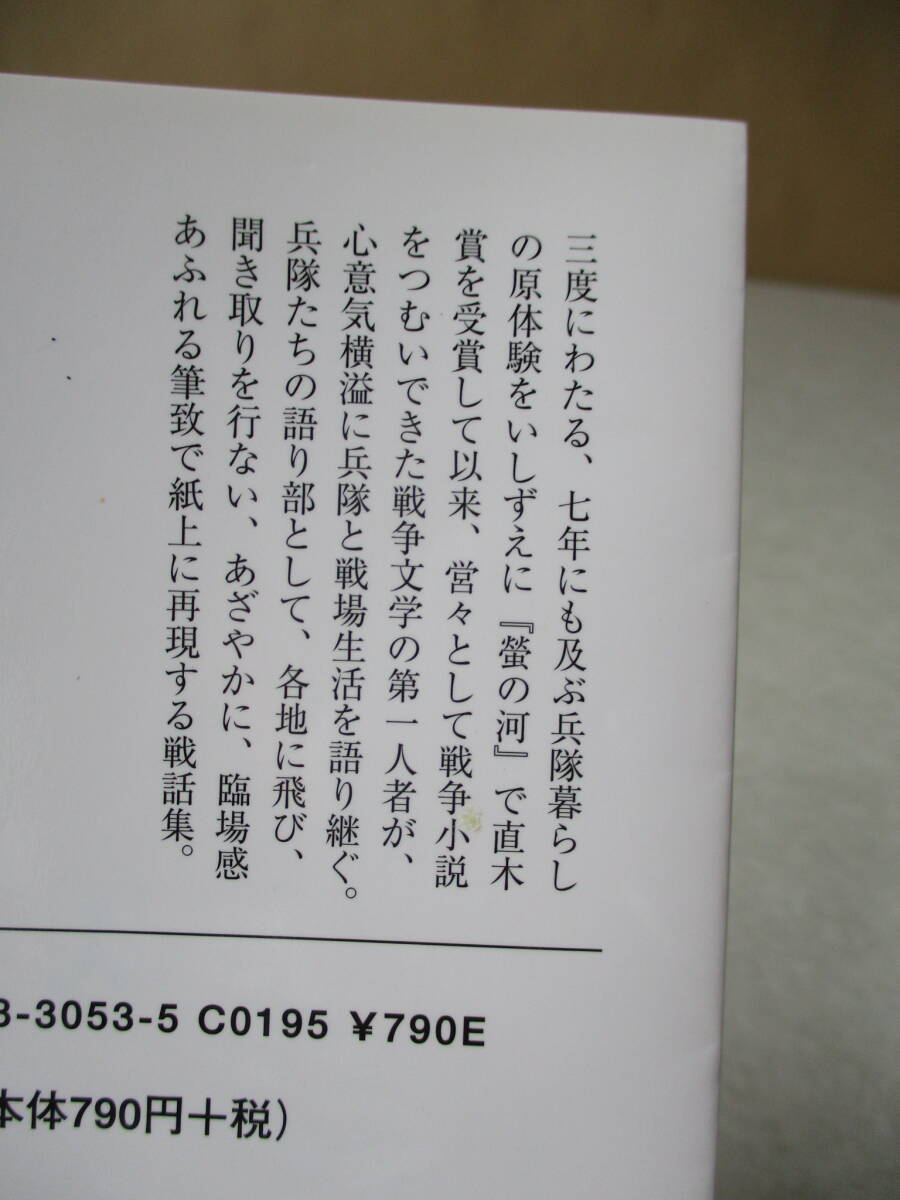 三度にわたる、七年にも及ぶ兵隊暮らし
の原体験をいしずえに『螢の河』で直木
賞を受賞して以来、営々として戦争小説
をつむいできた戦争文学の第一人者が、
心意気横溢に兵隊と戦場生活を語り継ぐ。
兵隊たちの語り部として、各地に飛び、
聞き取りを行ない、あざやかに、臨場感
あふれる筆致で紙上に再現する戦話集。
3-3053-5 C0195 ¥790E
本体790円+税)